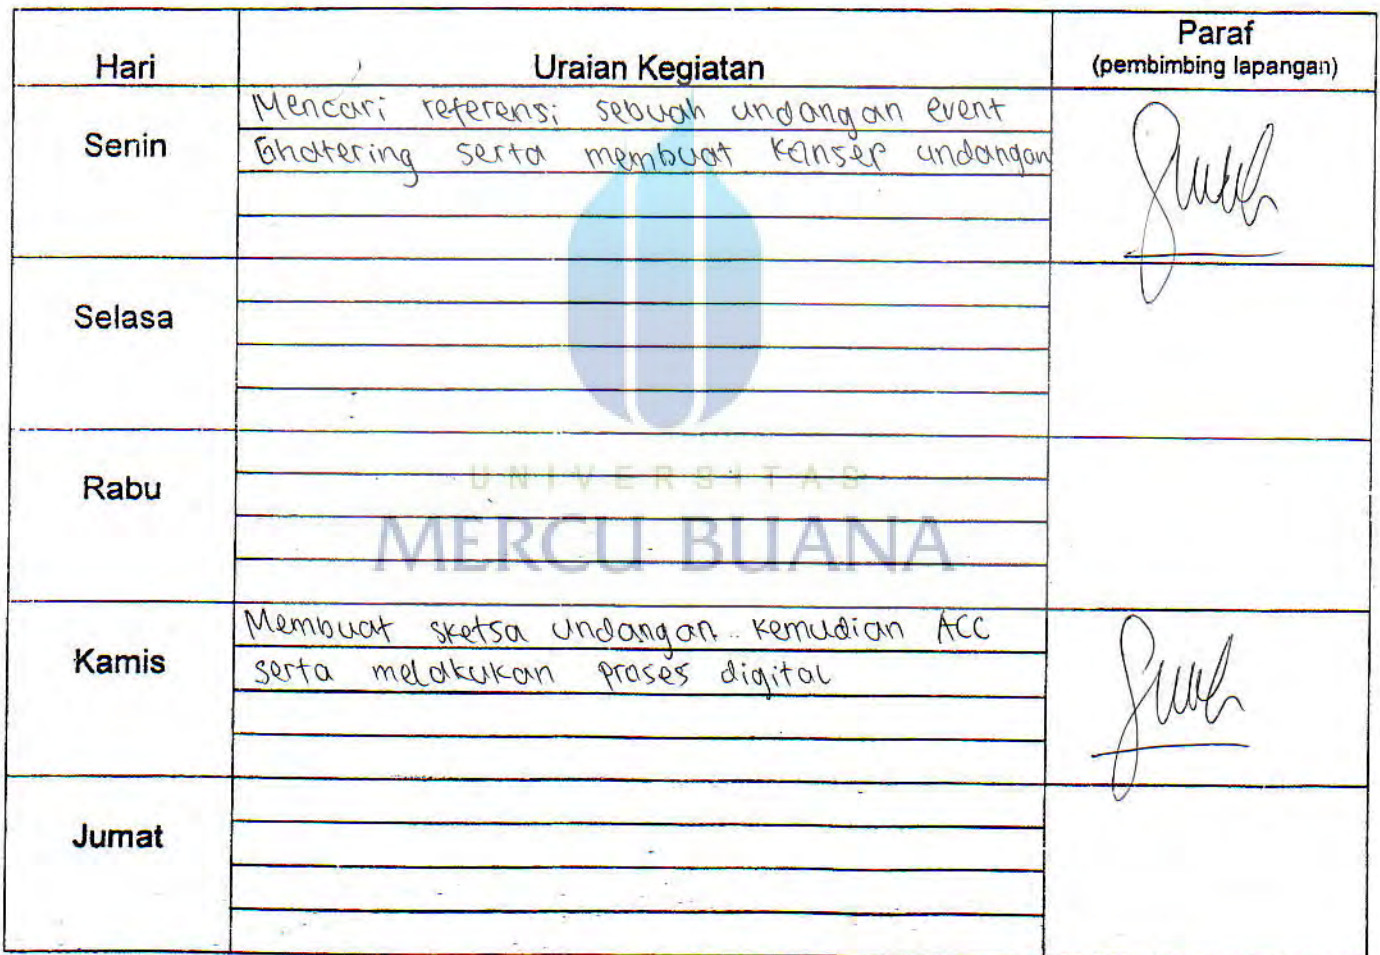 Hari Uraian Kegiatan Paraf
(pembimbing lapangan)
Senin
Mencari referensi sebuah undangan event
Ghatering serta membuat Konsep undangan
Selasa
Rabu
UNIVERSITAS
MERCU BUANA
Kamis
Membuat sketsa undangan kemudian ACC
serta melakukan proses digital
Jumat